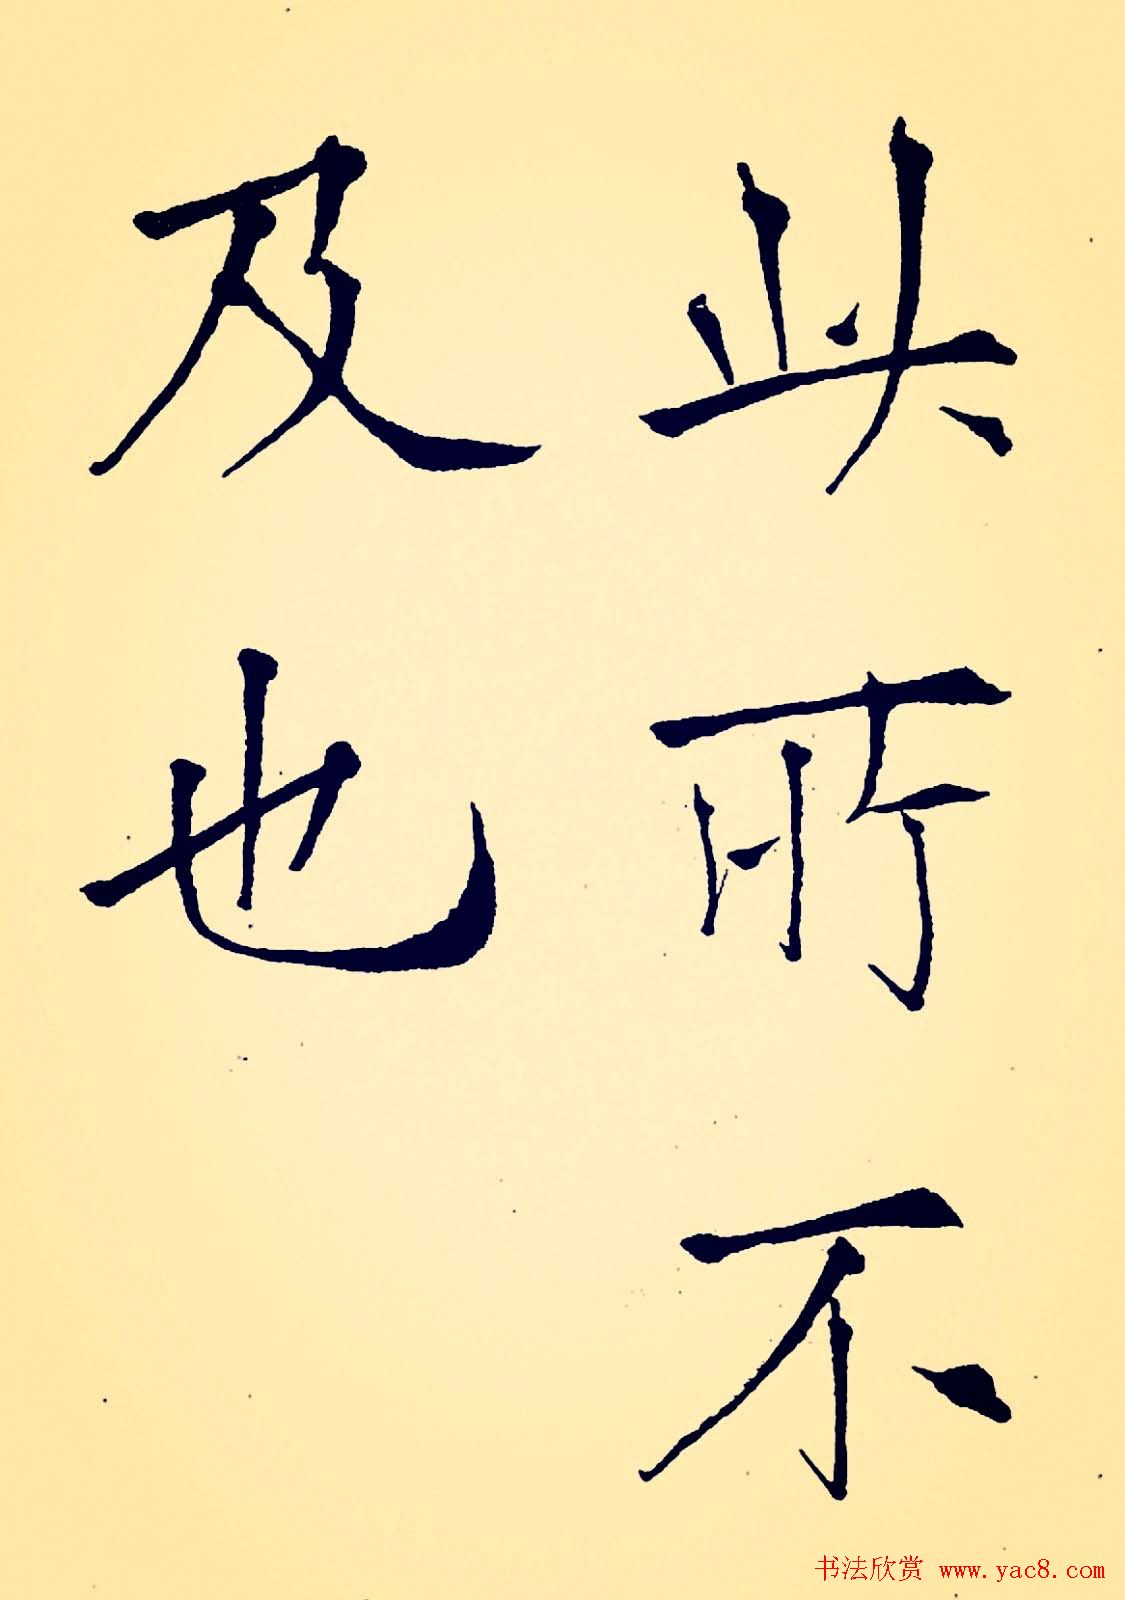 所不
及也
书法欣赏 www.yac8.com